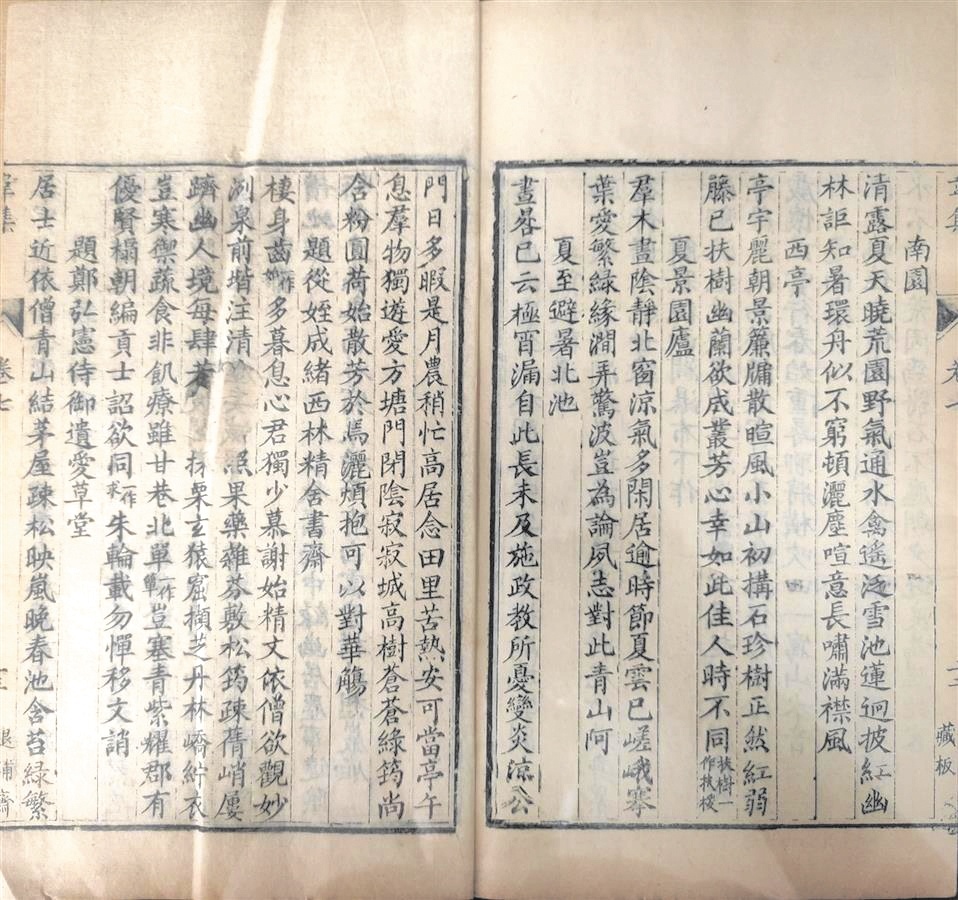 南園
清露夏天曉荒園野氣通水禽遙泛雪池蓮迥披紅幽
林詎知暑環舟似不窮頓灑塵喧意長嘯滿襟風
西亭
亭宇麗朝景簾牖散暄風小山初搆石珍樹正然紅弱
藤已扶樹幽蘭欲成叢芳心幸如此佳人時不同扶樹一作扶梭
夏景園廬
羣木晝陰靜北窗涼氣多閑居逾時節夏雲已嵯峨搴
葉愛繁綠緣澗弄驚波豈為論夙志對此青山阿
夏至避暑北池
晝晷已云極宵漏自此長未及施政教所憂變炎涼公
門日多暇是月農稍忙高居念田里苦熱安可當亭午
息羣物獨遊愛方塘門閉陰寂寂城高樹蒼蒼綠筠尚
含粉圓荷始散芳於焉灑煩抱可以對華觴
題從姪成緒西林精舍書齋
棲身齒多暮息心君獨少慕謝始精文依僧欲觀妙
冽泉前堦注清照果藥雜芬敷松筠疎蒨峭屢
躋幽人境每肆芳採栗玄猿窟擷芝丹林嶠紵衣
豈寒禦蔬食非飢療雖甘巷北單一作簞豈塞青紫耀郡有
優賢榻朝編貢士詔欲同作求朱輪載勿憚移文誚
題鄭弘憲侍御遺愛草堂
居士近依僧青山結茅屋疎松映嵐晚春池含苔綠繁
韋集
卷七
藏板